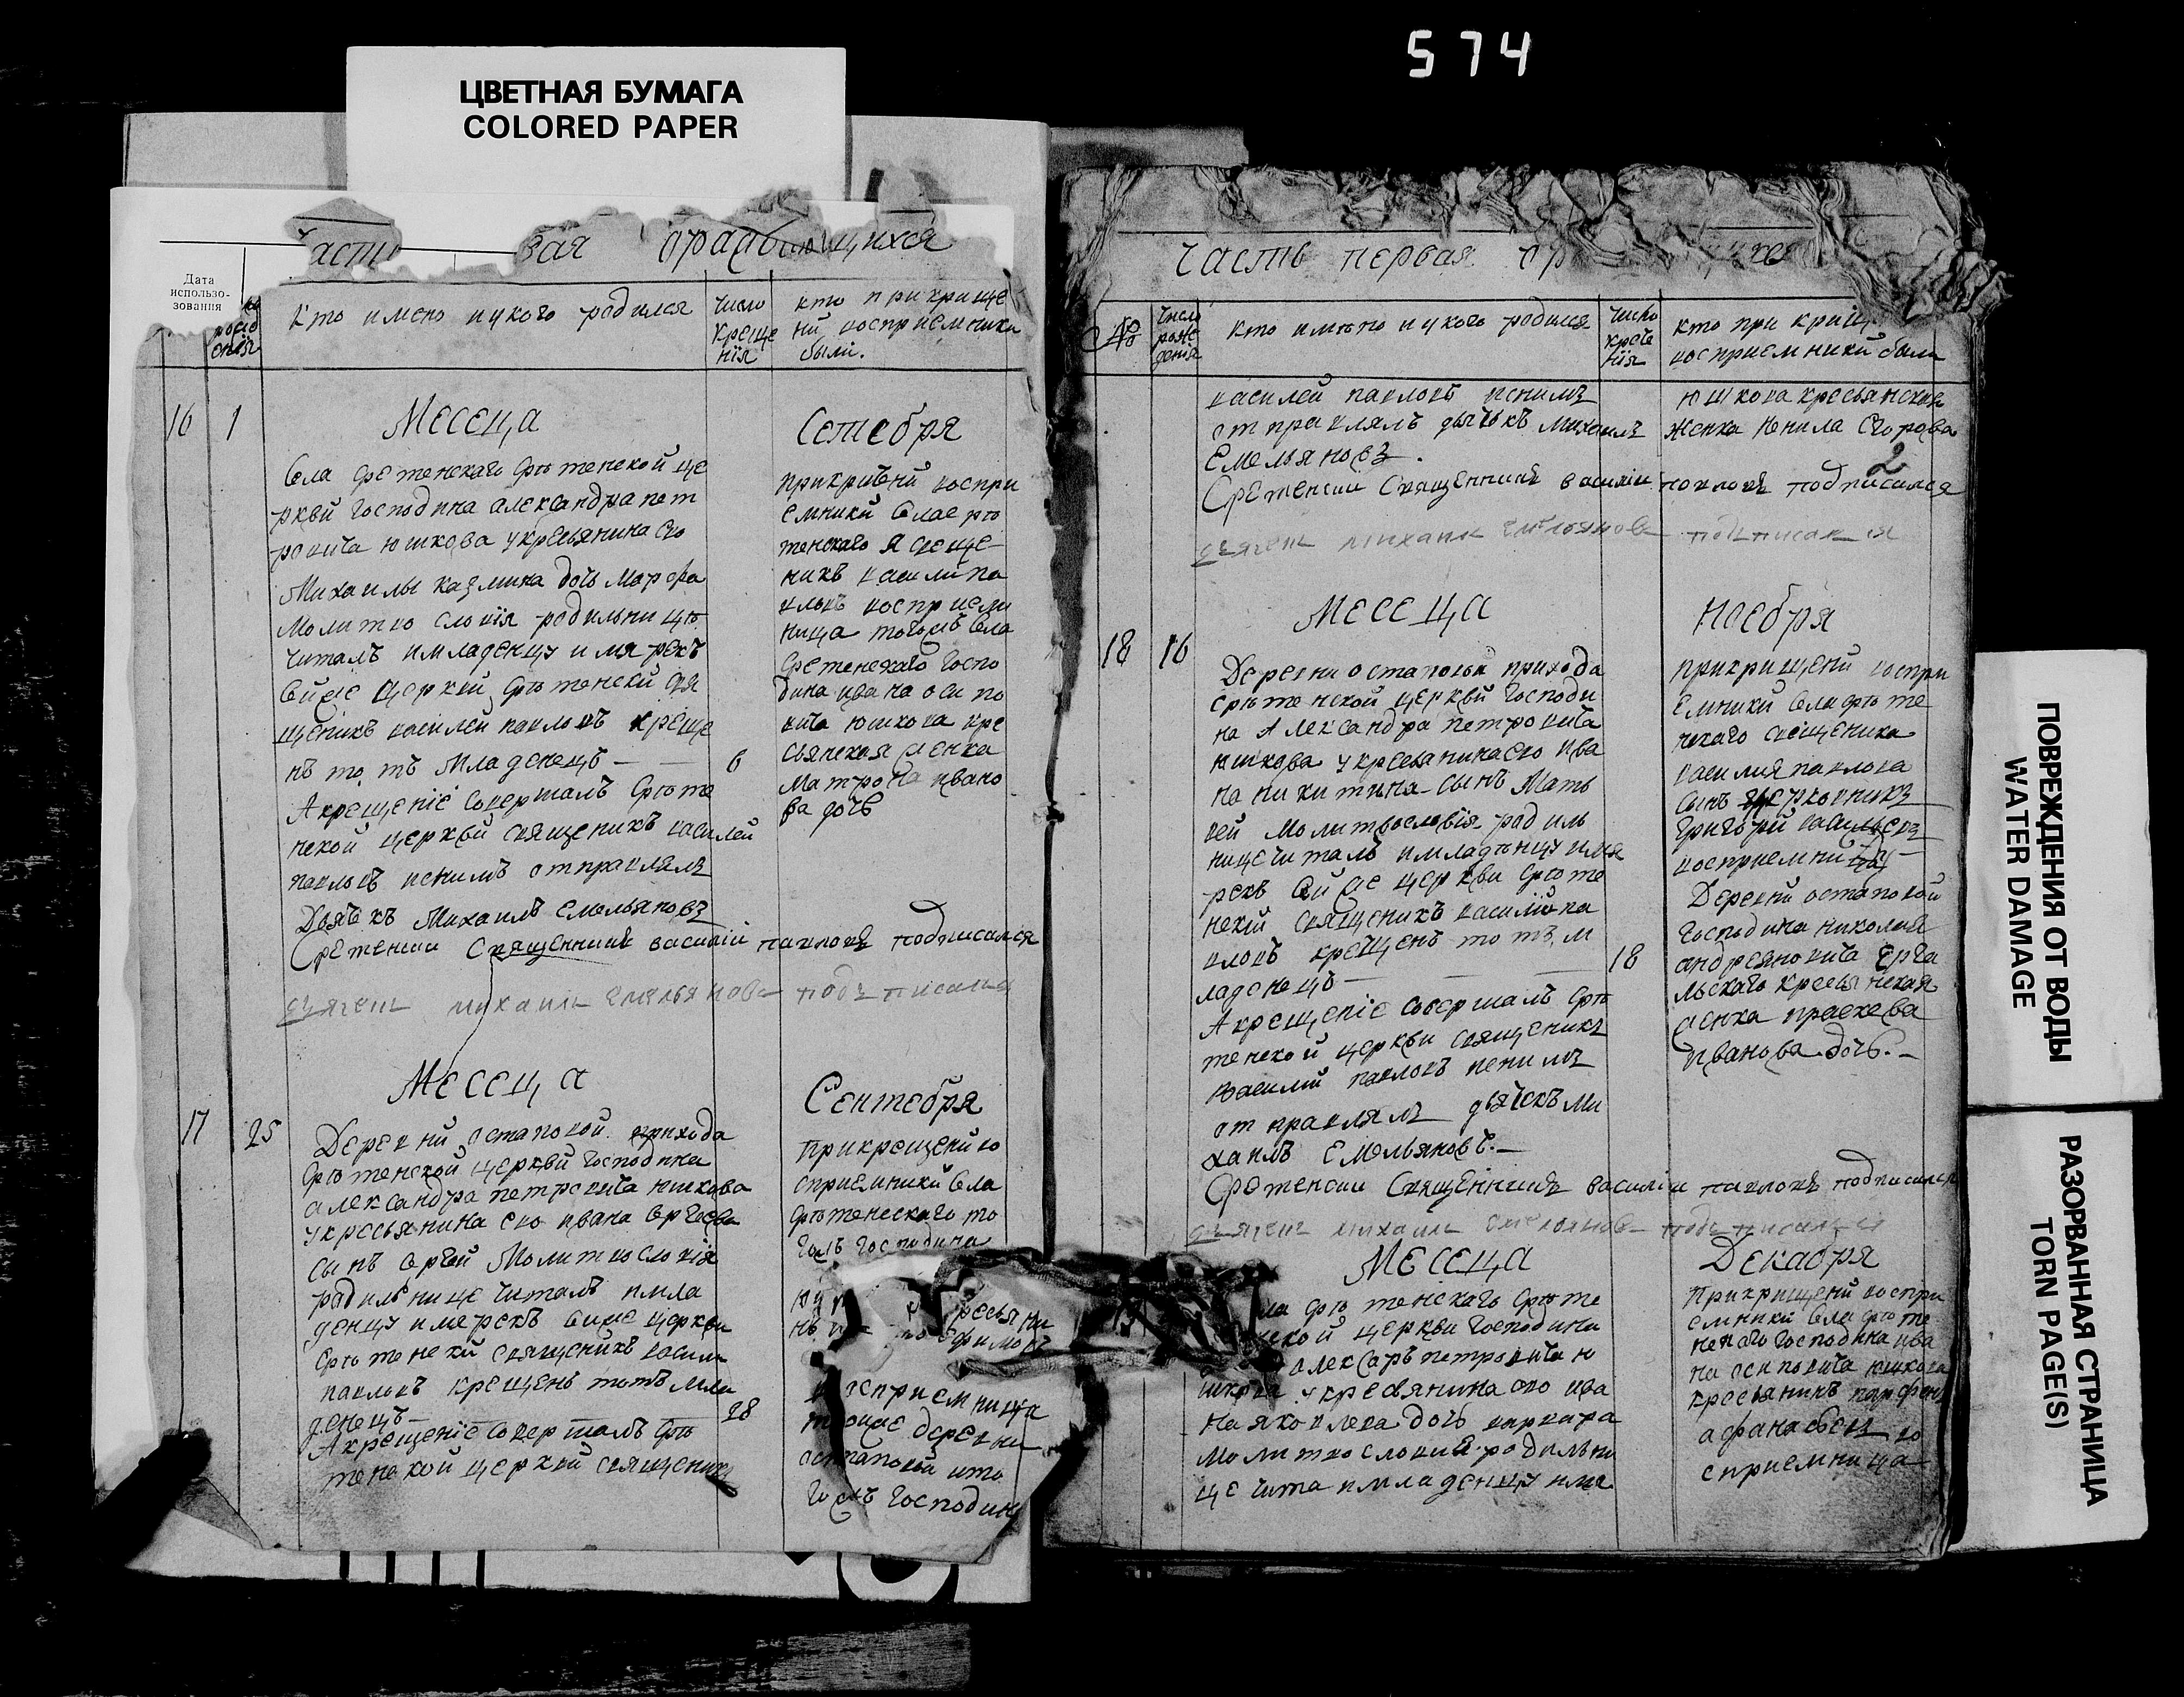 574
ЦВЕТНАЯ БУМАГА
COLORED PAPER
Дата
использо-
зования
вая
кто имено иукого родился
число
креще
нїя
кто прикрище
нй восприемники
были.
16 1
Месеца
Сетебря
Села Сретенскаго Срѣтенской це
рквй Господина александра пет
ровича юшкова укресьянина Его
Михаилы казмина дочь Марфа
Молитво словїя родильницѣ
Читалъ имладенцу имя рекъ
щеникъ василей павловъ креще
нъ тотъ Младенецъ —
6
Акрещенїе Совершалъ Срѣте
нской церквй священикъ василей
павловъ иснимъ отправлялъ
Дьячекъ Михаилъ Емельяновъ
прикрищенй воспри
емникй Села срѣ
тенскаго
никъ васили па
вловъ восприем
ница тогожъ Села
Сретенскаго Госпо
дина ивана оси по
вича юшкова кре
сьянская женка
Матрона ивано
ва дочь
Сретенски Священникъ василий павловъ подписался
дьячекъ михаилъ емельяновъ подписался
Месеца
Сентебря
17 25
Деревнй остаповой прихода
Срѣтенской церквй Господина
александра петровича юшкова
укресьянина его ивана
сынъ Молитвословїя
радильнице Читалъ имла
денцу имярекъ церкви
Срѣтенский священикъ васили
павловъ крещенъ тотъ мла
денецъ —
28
Акрещенїе Совершалъ Срѣ
тенской церквй священикъ
прикрещенй во
сприемникй Села
Срѣтенскаго то
гожъ Господина
восприемница
тоюже деревни
остаповой ито
гожъ Господина
часть первая
№
число
рож
денїя
кто имѣно иукого родился
число
креще
нїя
кто при крищ
восприемникй были
василей павловъ иснимъ
отправлялъ дьячекъ михаилъ
Емельяновъ.
юшкова кресьянская
женка
2
Сретенски Священникъ василий павловъ подписался
дьячекъ михаилъ емельяновъ подписался
Месеца
Ноебря
18 16
Деревни остаповой прихода
срѣтенской церквй Господи
на Александра петровича
юшкова укресьянина его ива
на никитина сынъ Мать
вей Молитвословїя радиль
нице читалъ имладѣнцу имя
рекъ церкви Срѣте
нский священикъ василий па
вловъ крещенъ тотъ м
ладенецъ —
18
Акрещенїе Совершалъ Срѣ
тенской церкви священикъ
василий павловъ иснимъ
отправлялъ дьячекъ ми
хаилъ Емельяновъ. —
прикрищенй воспри
емникй Села срѣте
нскаго священика
василия павлова
сынъ
григорий васильевъ
восприемница
Деревнй остаповой
Господина николая
андреяновича
кресьянская
женка праскева
иванова дочь. —
Срѣтенски Священникъ василий павловъ подписался
дьячекъ михаилъ емельяновъ подписался
Месеца
Декабря
ла Срѣтенскаго Срѣте
нской церкви Господина
алексаръ петровича ю
шкова укресьянина его ива
на яковлева дочь варвара
Молитвословия родильни
це чита имладенцу имя
Прикрищенй воспри
емникй Села срѣте
нскаго Господина ива
на осиповича юшкова
кресьянинъ парфенъ
афанасьевъ во
сприемница
ПОВРЕЖДЕНИЯ ОТ ВОДЫ
WATER DAMAGE
РАЗОРВАННАЯ СТРАНИЦА
TORN PAGE(S)